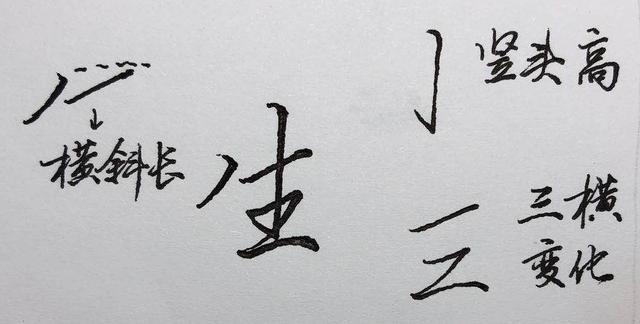 横斜长
生
竖头高
三横
变化